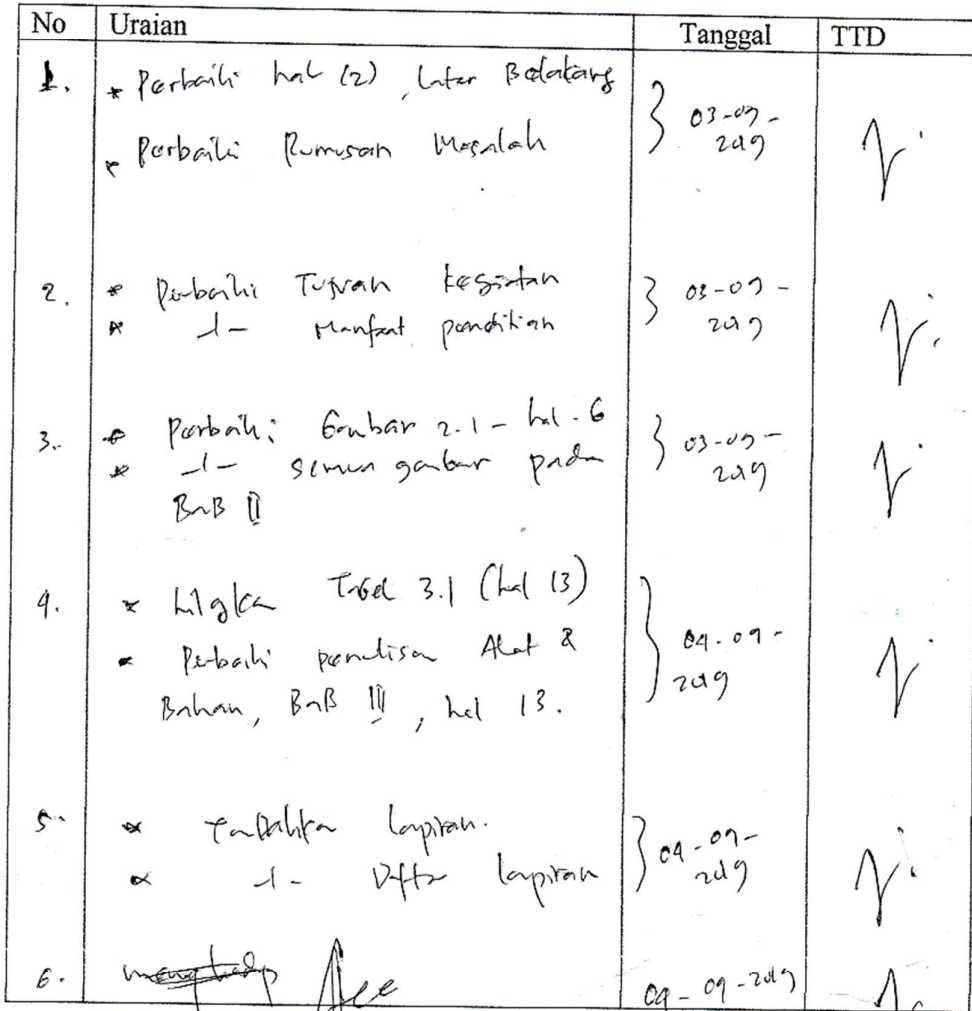 No Uraian Tanggal TTD
1. * Perbaiki hal (2), Latar Belakang
* Perbaiki Rumusan Masalah
03-09-
2019
2. * Perbaiki Tujuan kegiatan
* -1- Manfaat penelitian
03-09-
2019
3. * Perbaiki Gambar 2.1 - hal. 6
* -1- semua gambar pada
BAB II
03-09-
2019
4. * Tabel 3.1 (hal 13)
* Perbaiki penulisan Alat &
Bahan, BAB III, hal 13.
04-09-
2019
5. * Tambahkan lampiran.
* -1- Daftar lampiran
04-09-
2019
6. Acc
09-2019